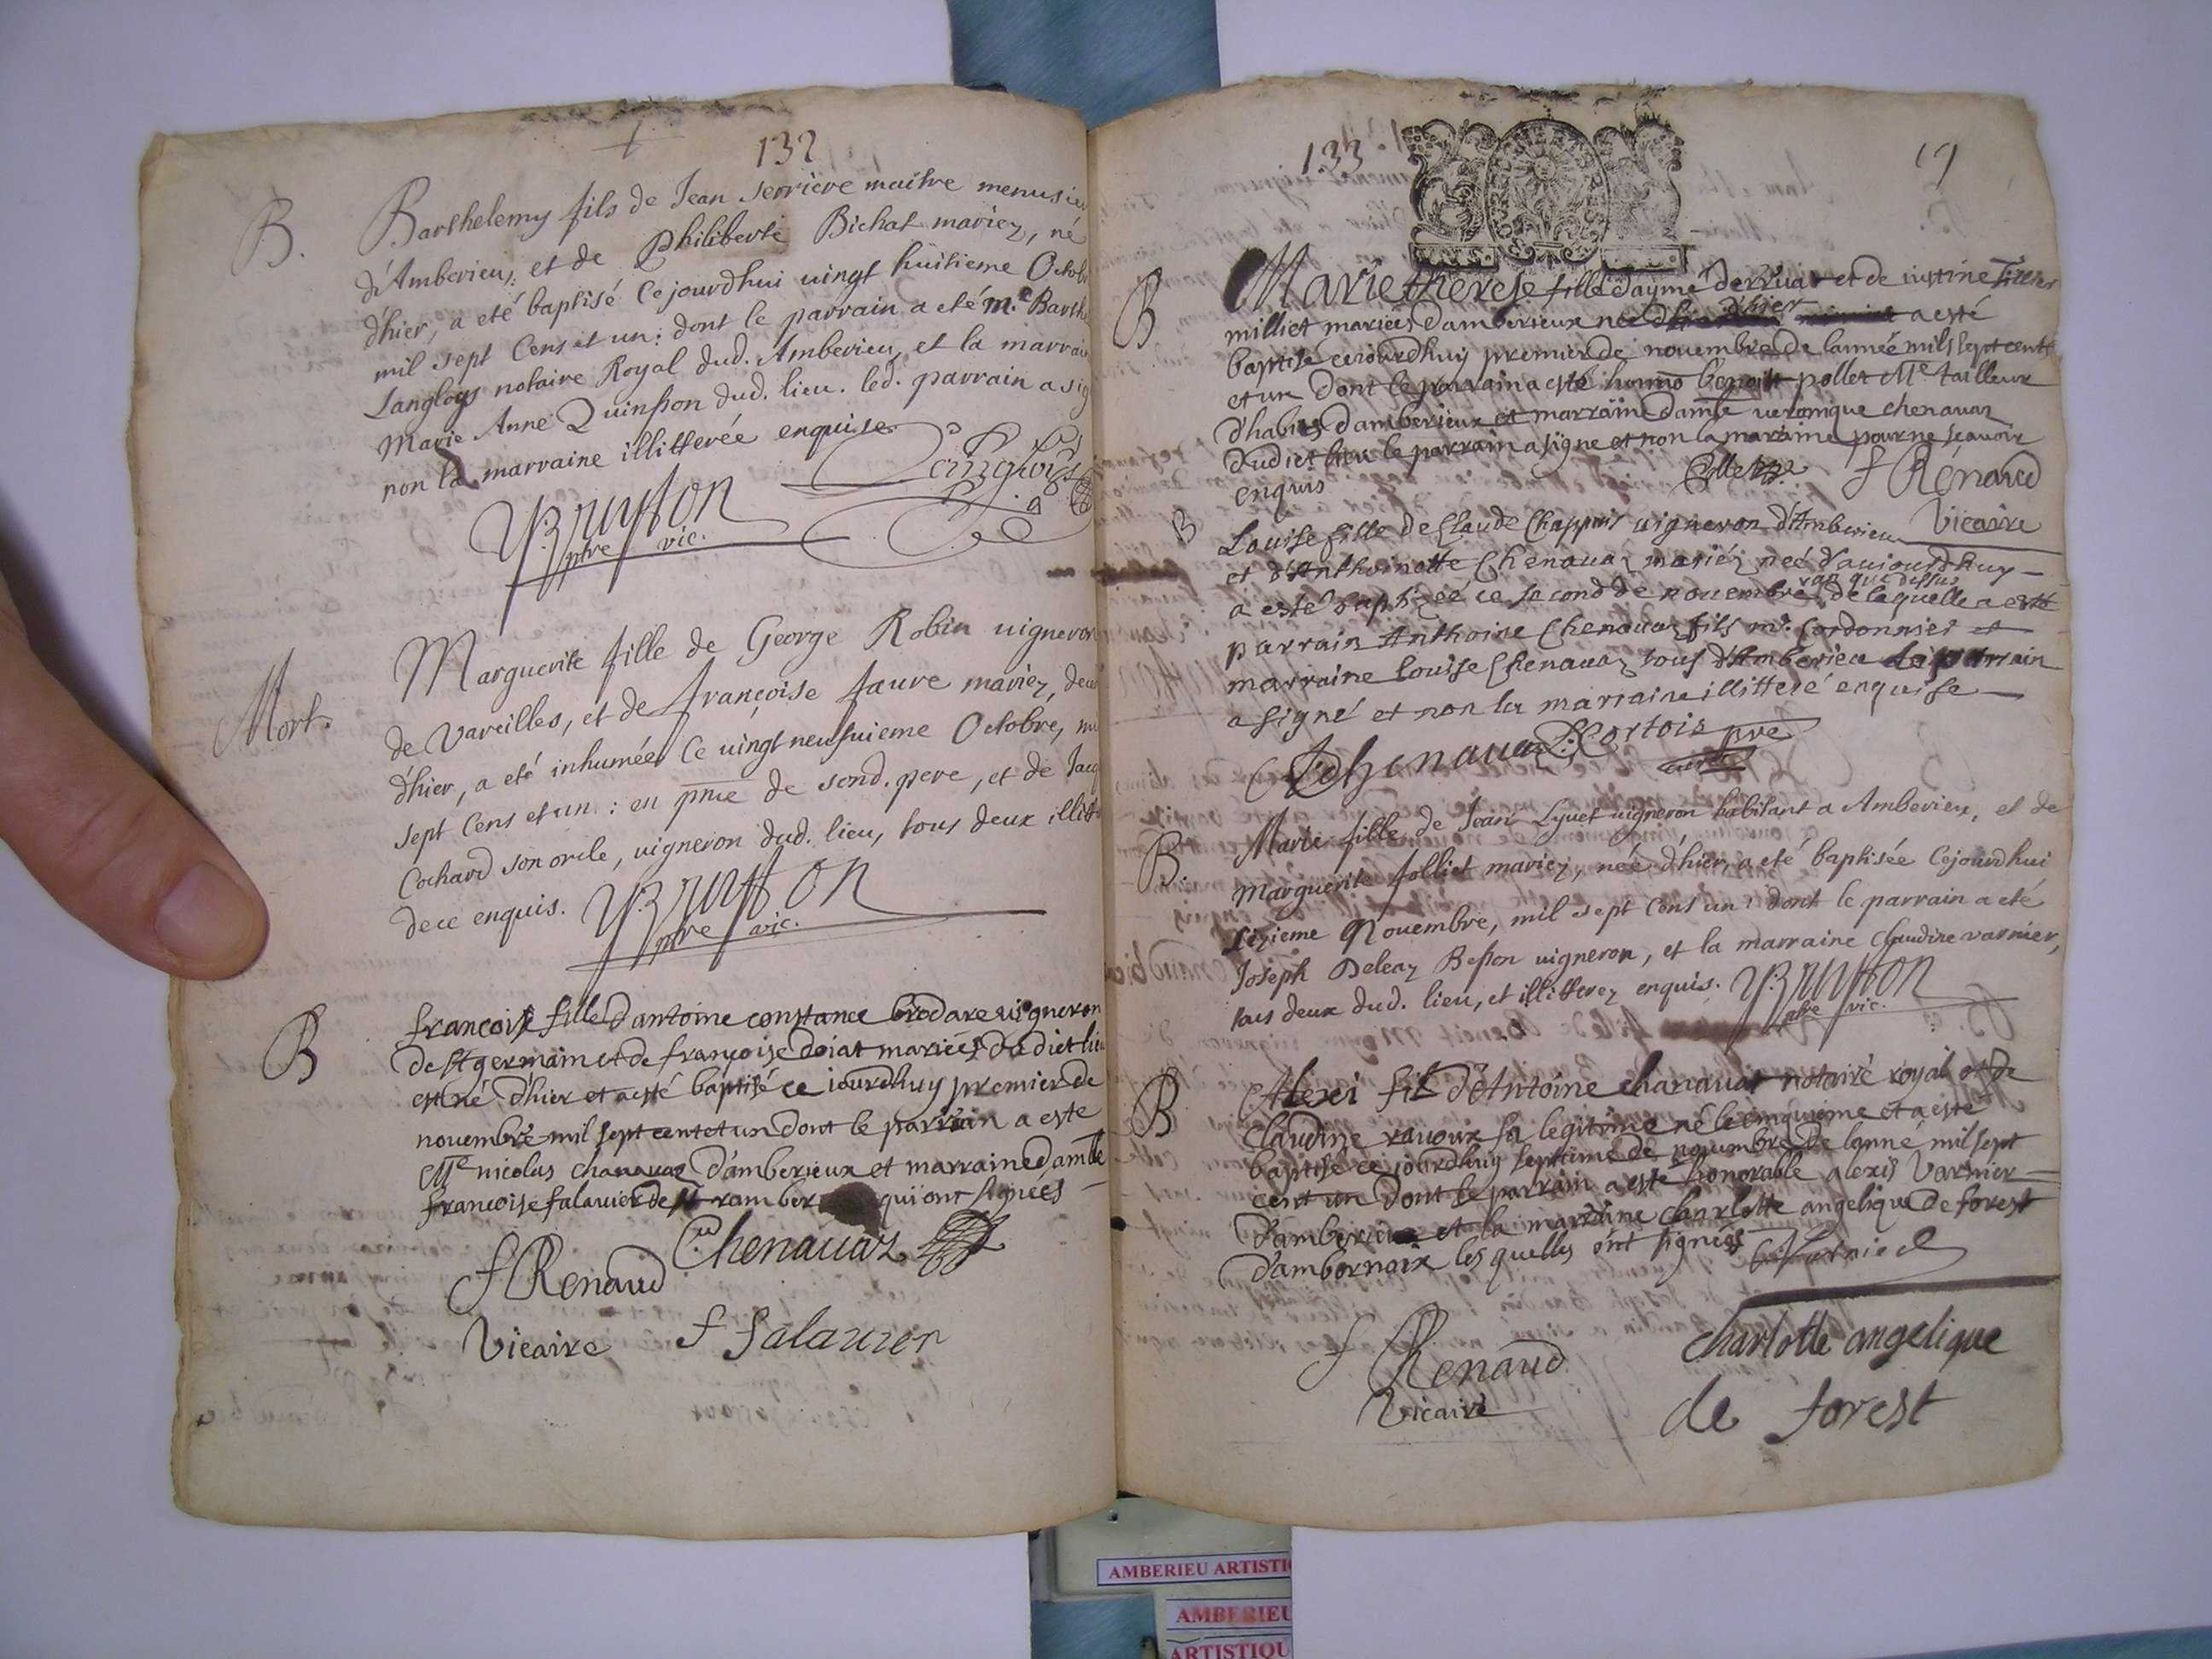 132
B.
Barthelemy fils de Jean Serriere maitre menusie
d'Amberieu; et de Philiberte Bichat mariez, né
d'hier, a eté baptisé Cejourdhui uingt huitieme Octob
mil sept Cens et un: dont le parrain a eté Me. Barth
Langloys notaire Royal dud. Amberieu, et la marrai
Marie Anne Quinson dud. lieu. led. parrain a sig
non la marraine illitterée enquise.
Langlois
Bruffon
ptre vic.
Mort.
Marguerite fille de George Robin uigneron
de Vareilles, et de françoise faure mariez, dece
d'hier, a eté inhumée Ce uingt neufuieme Octobre, mi
sept Cens et un: en pnce de sond. pere, et de Jacq
Cochard son oncle, uigneron dud. lieu, tous deux illitt
de ce enquis.
Bruffon
ptre vic.
B
francoise fille d'antoine constance brodare uigneron
de St germain et de françoise doiat mariées dudict lieu
est né d'hier et a esté baptisé ce iourdhuy premier de
nouembre mil sept cent et un dont le parrain a este
Me nicolas chanauaz d'amberieux et marraine damlle
francoise falauier de st ramber qui ont signées
Chenauaz
f Renaud
Vicaire
f falauier
133
19
B
Marie therese fille d'ayme derruat et de iustine
milliet mariées d'amberieux née d'hier a esté
baptisé ceiourdhuy premier de nouembre de lannée mil sept cent
et un dont le parrain a esté honno benoist pollet Me tailleur
d'habits d'amberieux et marraine damlle ueronique chenauaz
dudict lieu le parrain a signe et non la maraine pour ne scauoir
enquis
Pollet
f Rénaud
Vicaire
B
Louise fille de Claude Chappuis uigneron d'Amberieu
et d'Anthoinette Chenauaz mariéz neé d'auiourdhuy
van que dessus
a esté baptizeé ce second de nouembre de laquelle a esté
parrain Anthoine Chenauaz fils mr. Cordonnier et
marraine louise Chenauaz tous d'Amberieu le parrain
a signé et non la marraine illitteré enquise
A chenauaz
Cortois pre
curé
B.
Marie fille de Jean Lyuet uigneron habitant a Amberieu, et de
Marguerite folliet mariez, née d'hier, a eté baptisée Cejourdhui
sixieme Nouembre, mil sept Cens un: dont le parrain a eté
Joseph Deleaz Besson uigneron, et la marraine Claudine varnier,
tous deux dud. lieu, et illitterez enquis.
Bruffon
ptre vic.
B
Alexi fils d'Antoine chanauat notaire royal et de
Claudine rauoux sa legitime né le cinquieme et a esté
baptisé ce jourdhuy septime de nouembre de lanné mil sept
cent un dont le parrain a esté honorable alexis Varnier
d'amberieu et la marraine charlotte angelique de forest
d'ambornaix les quelles ont signées
A Varnied
f Renaud
Vicaire
charlotte angelique
de forest
AMBERIEU ARTISTI
AMBERIEU
ARTISTIQU